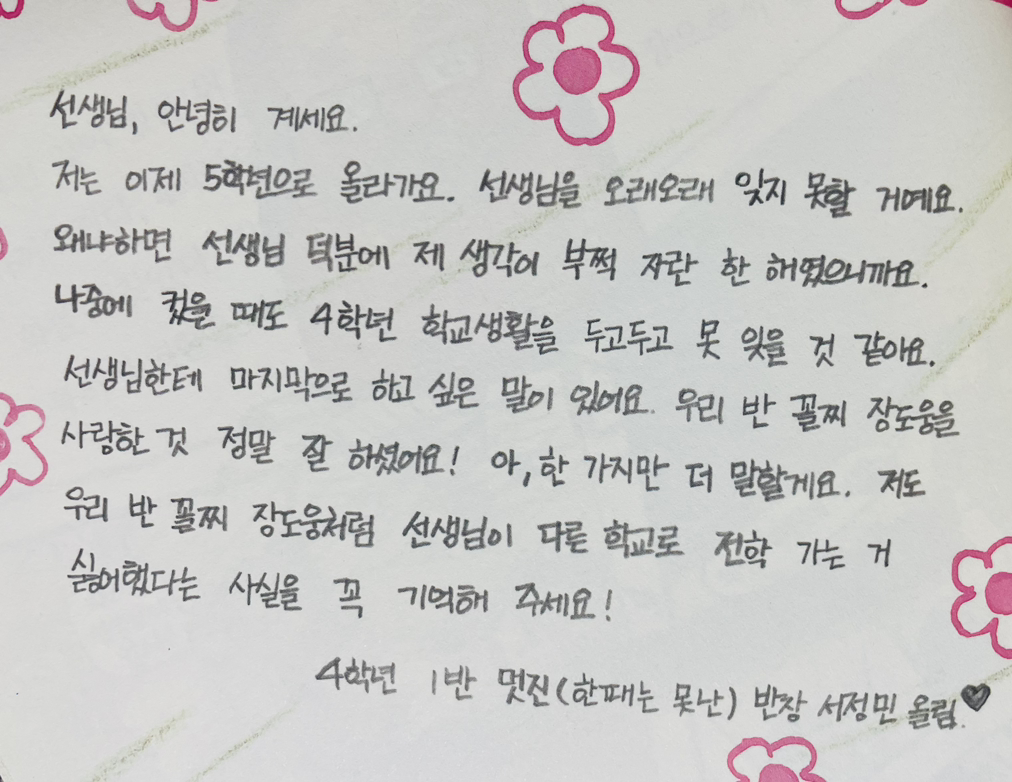 선생님, 안녕히 계세요.
저는 이제 5학년으로 올라가요. 선생님을 오래오래 잊지 못할 거예요.
왜냐하면 선생님 덕분에 제 생각이 부쩍 자란 한 해였으니까요.
나중에 컸을 때도 4학년 학교생활을 두고두고 못 잊을 것 같아요.
선생님한테 마지막으로 하고 싶은 말이 있어요. 우리 반 꼴찌 장도웅을
사랑한 것 정말 잘 하셨어요! 아, 한 가지만 더 말할게요. 저도
우리 반 꼴찌 장도웅처럼 선생님이 다른 학교로 전학 가는 거
싫어했다는 사실을 꼭 기억해 주세요!
4학년 1반 멋진(한때는 못난) 반장 서정민 올림.♥